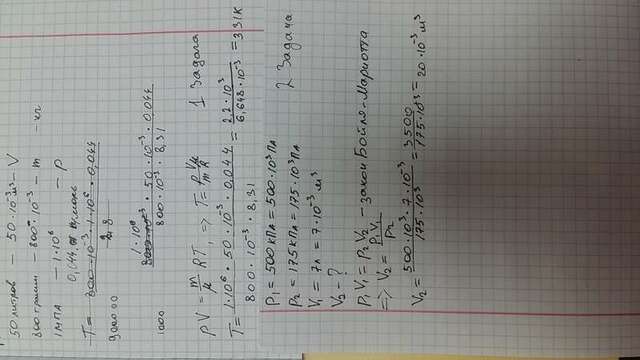 50 литров — 50·10⁻³ м³ — V
800 грамм — 800·10⁻³ — m — кг
1 МПа — 1·10⁶ — P
0,044
T = 800·10⁻³·1·10⁶·0,044
8
1·10⁶
800·10⁻³·50·10⁻³·0,044
800·10⁻³·8,31
1000
1 Задача
PV = m/μ RT, => T = PVμ/mR
T = 1·10⁶·50·10⁻³·0,044 / 800·10⁻³·8,31 = 2,2·10³ / 6,648·10⁻³ = 331K
2 Задача
P₁ = 500 кПа = 500·10³ Па
P₂ = 175 кПа = 175·10³ Па
V₁ = 7л = 7·10⁻³ м³
V₂ — ?
P₁V₁ = P₂V₂ — закон Бойля-Мариотта
=> V₂ = P₁V₁/P₂
V₂ = 500·10³·7·10⁻³ / 175·10³ = 3500 / 175·10³ = 20·10⁻³ м³